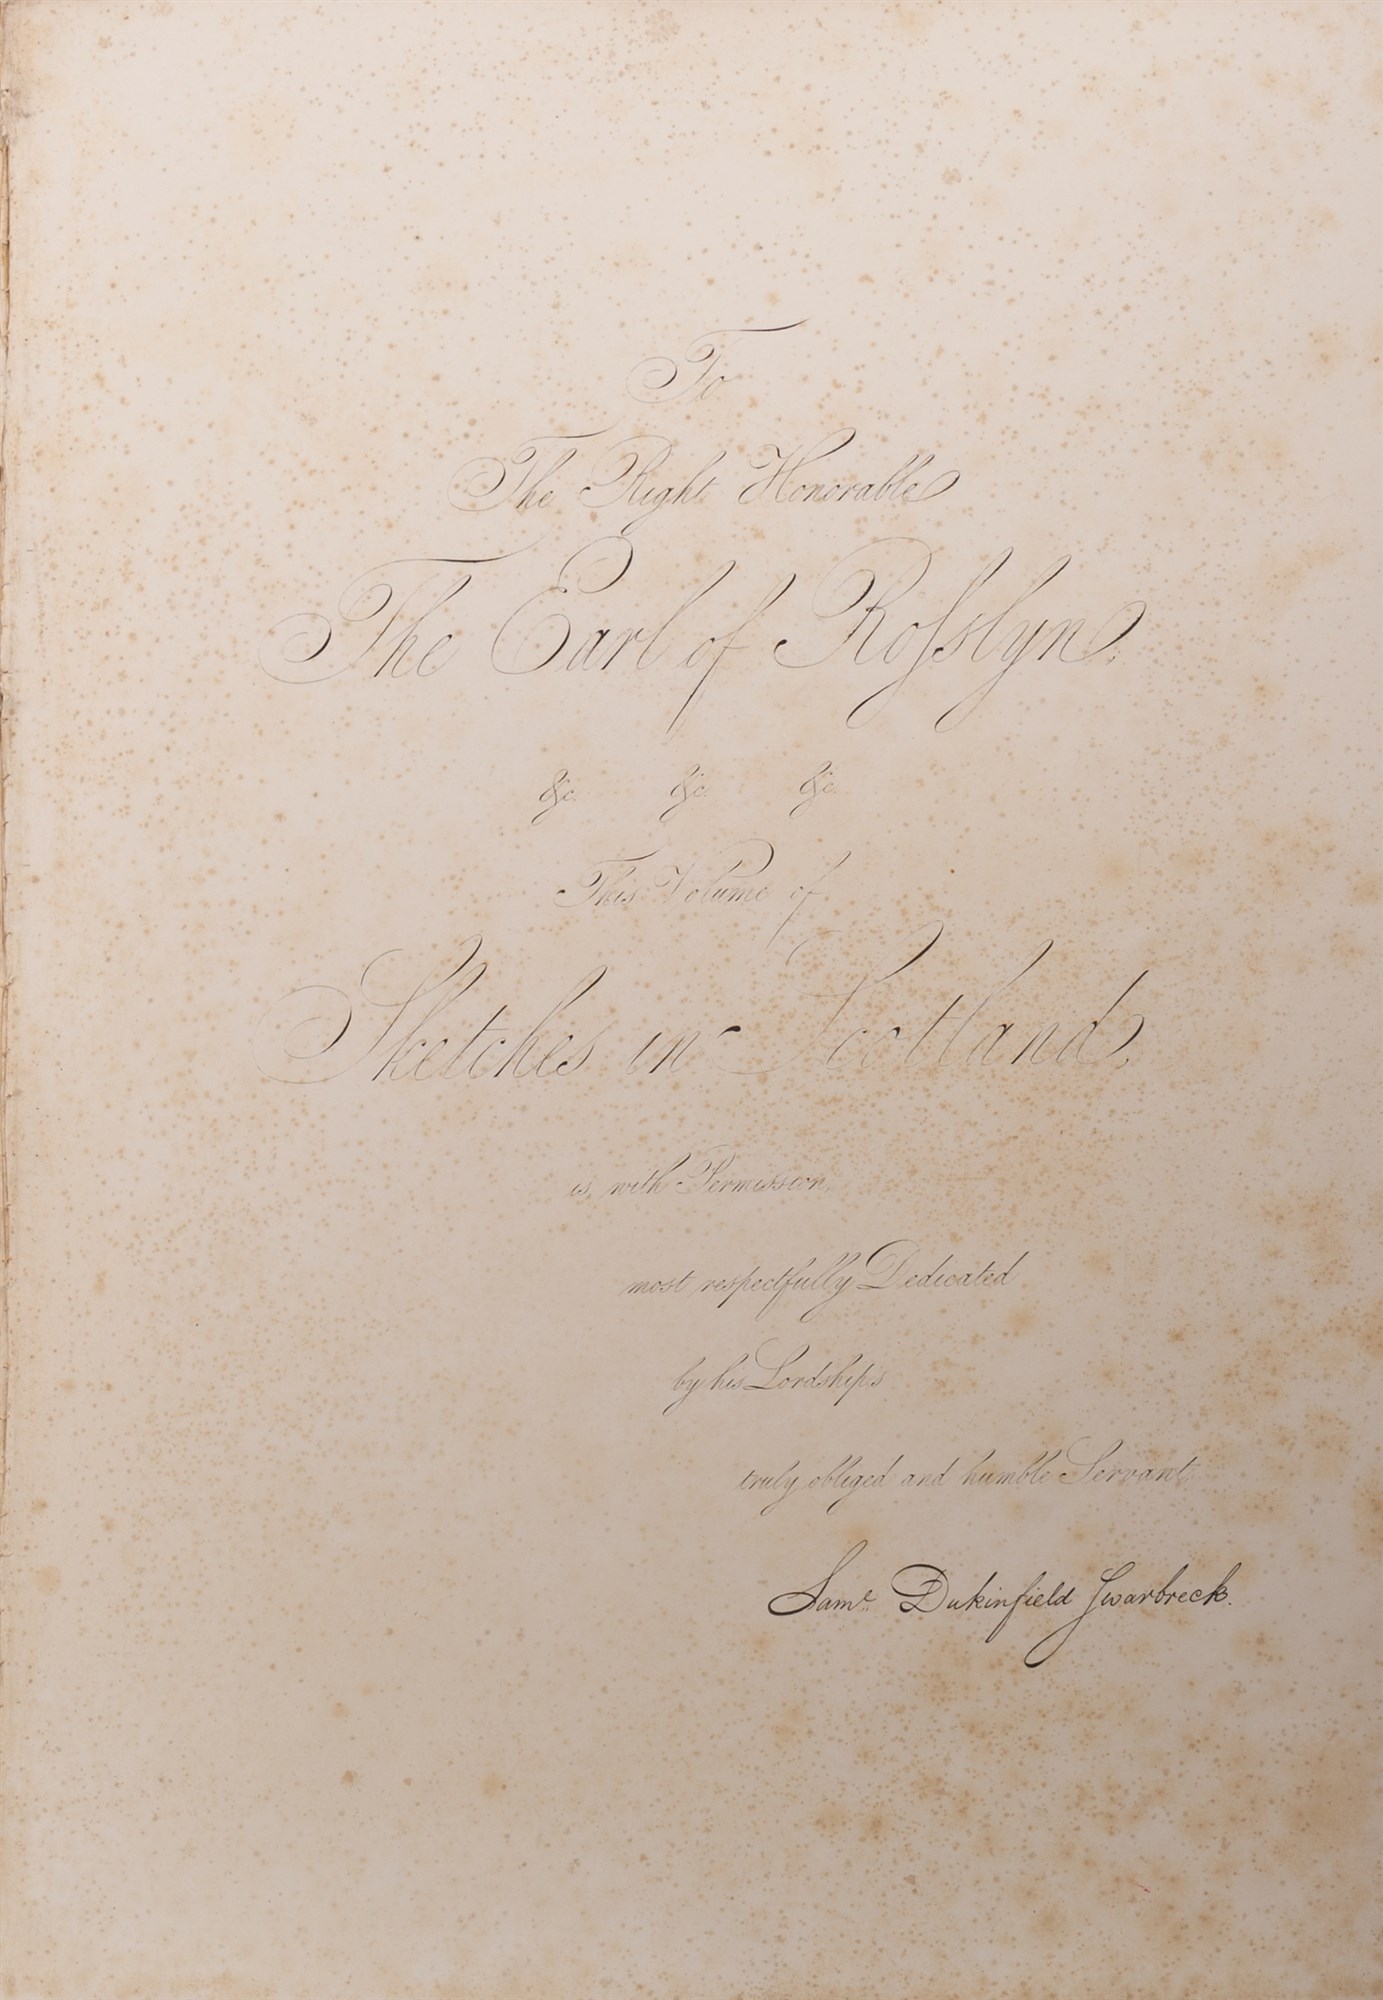 To
The Right Honorable
The Earl of Roſslyn,
&c. &c. &c.
This Volume of
Sketches in Scotland,
is, with Permission,
most respectfully Dedicated
by his Lordships
truly obliged and humble Servant,
Saml. Dukinfield Swarbreck.